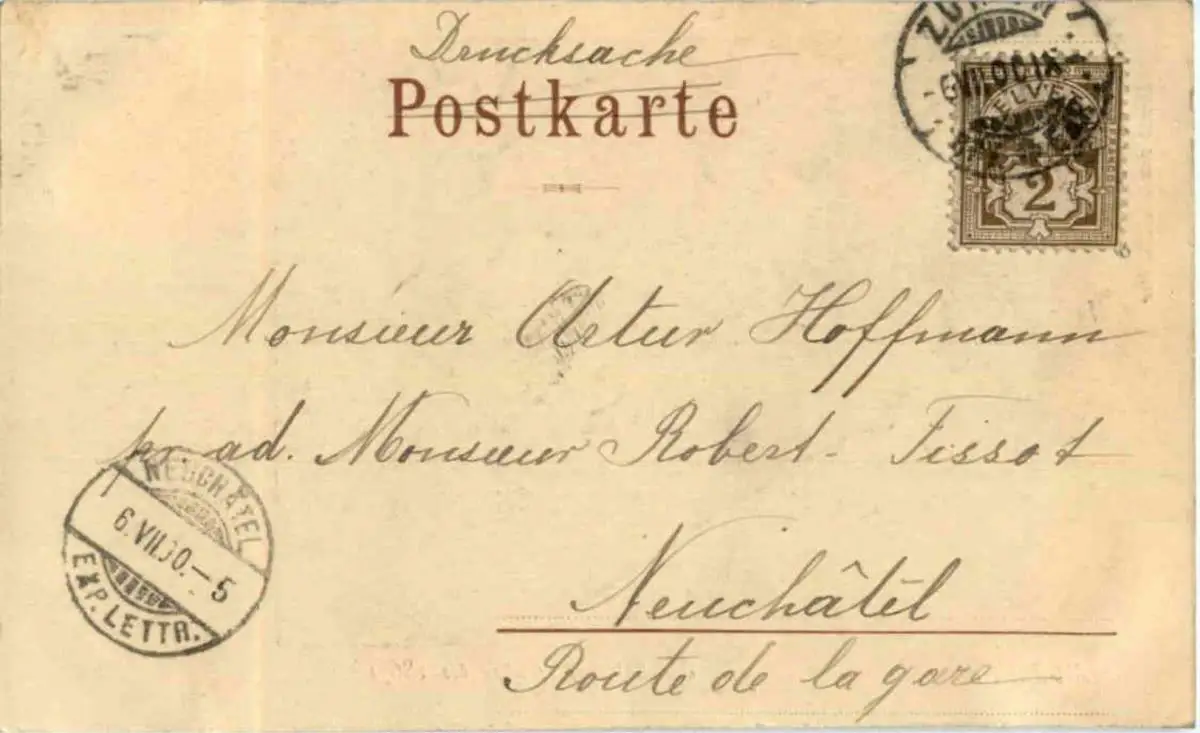 Drucksache
Postkarte
HELVETIA
2
Monsieur Artur Hoffmann
pr. ad. Monsieur Robert-Tissot
NEUCHATEL
6.VII.00.-5
EXP. LETTR.
Neuchâtel
Route de la gare